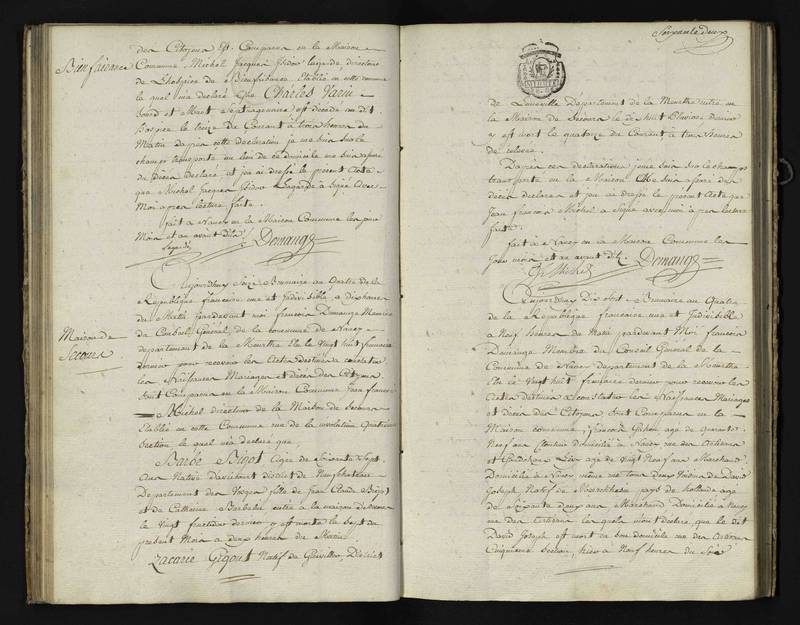 Bienfaisance
des Citoyens Est Comparu en la Maison
Commune Michel Jacques Isidor Lagarde, directeur
de L'hospice de Bienfaisance Etablie en cette commune
le quel m'a declaré que Charles Varin
Sourd et Muet Septuagenaire est decedé au dit
hospice le treize du Courant à trois heures du
Matin d'apres cette declaration je me suis sur le
champ transporté au lieu de ce domicile me suis assuré
du deces declaré et j'en ai dressé le present Acte
que Michel Jacques Isidor Lagarde à Signé avec
Moi apres lecture faite.
fait à Nancy en la Maison Commune les jour
Mois et an avant dits.
Lagarde Demange
Maison de
Secours
Aujourdhuy Seize Brumaire an Quatre de la
République francaise une et Indivisible, à dix heures
du Matin pardevant moi francois Demange Membre
du Conseil Général de la Commune de Nancy
departement de la Meurthe Elu le vingt huit frimaire
dernier pour recevoir les Actes destinés à constater
les Naissances Mariages et décès des Citoyens
Sont Comparus en la Maison Commune Jean francois
Michel directeur de la Maison de Secours
Etablie en cette Commune rue de la révolution Quatrieme
Section le quel m'a declaré que
Barbe Bigot agée de Soixante Sept
Ans Native district de Neufchateau
Departement des Vosges fille de Jean Claude Bigot
et de Catherine entrée à la maison de Secours
le vingt fructidor dernier y est morte le Sept du
present Mois a deux heures du Matin.
Zacarie Gigout Natif de District
Soixante deux
de Lunéville Département de la Meurthe entré en
la Maison de Secours le dix huit Pluviose dernier
y est mort le quatorze du Courant à trois heures
de relevée.
D'après ces déclarations je me suis sur le champ
transporté en la Maison Me suis assuré des
décès déclarés et j'en ai dressé le présent Acte que
Jean francois Michel a Signé avec moi apres lecture
faite.
fait à Nancy en la Maison Commune les
Jour mois et an avant dits.
Michel Demange
Aujourdhuy Dix Sept Brumaire an Quatre
de la République francaise une et Indivisible
à Neuf heures du Matin pardevant Moi francois
Demange Membre du Conseil Général de la
Commune de Nancy departement de la Meurthe
Elu le Vingt huit frimaire dernier pour recevoir les
Actes destinés à Constater les Naissances Mariages
et décès des Citoyens Sont Comparus en la
Maison commune, francois agé de quarante
Neuf ans domicilié à Nancy rue des Artisans
et Lévy agé de vingt Neuf ans Marchand
Domicilié à Nancy même rue tous deux Voisins de David
Joseph, Natif de pays de hollande agé
de Soixante deux ans Marchand Domicilié à Nancy
rue des Artisans les quels m'ont déclaré, que le dit
David Joseph est mort en son domicile rue des Artisans
Cinquieme Section, hier à Neuf heures du Soir